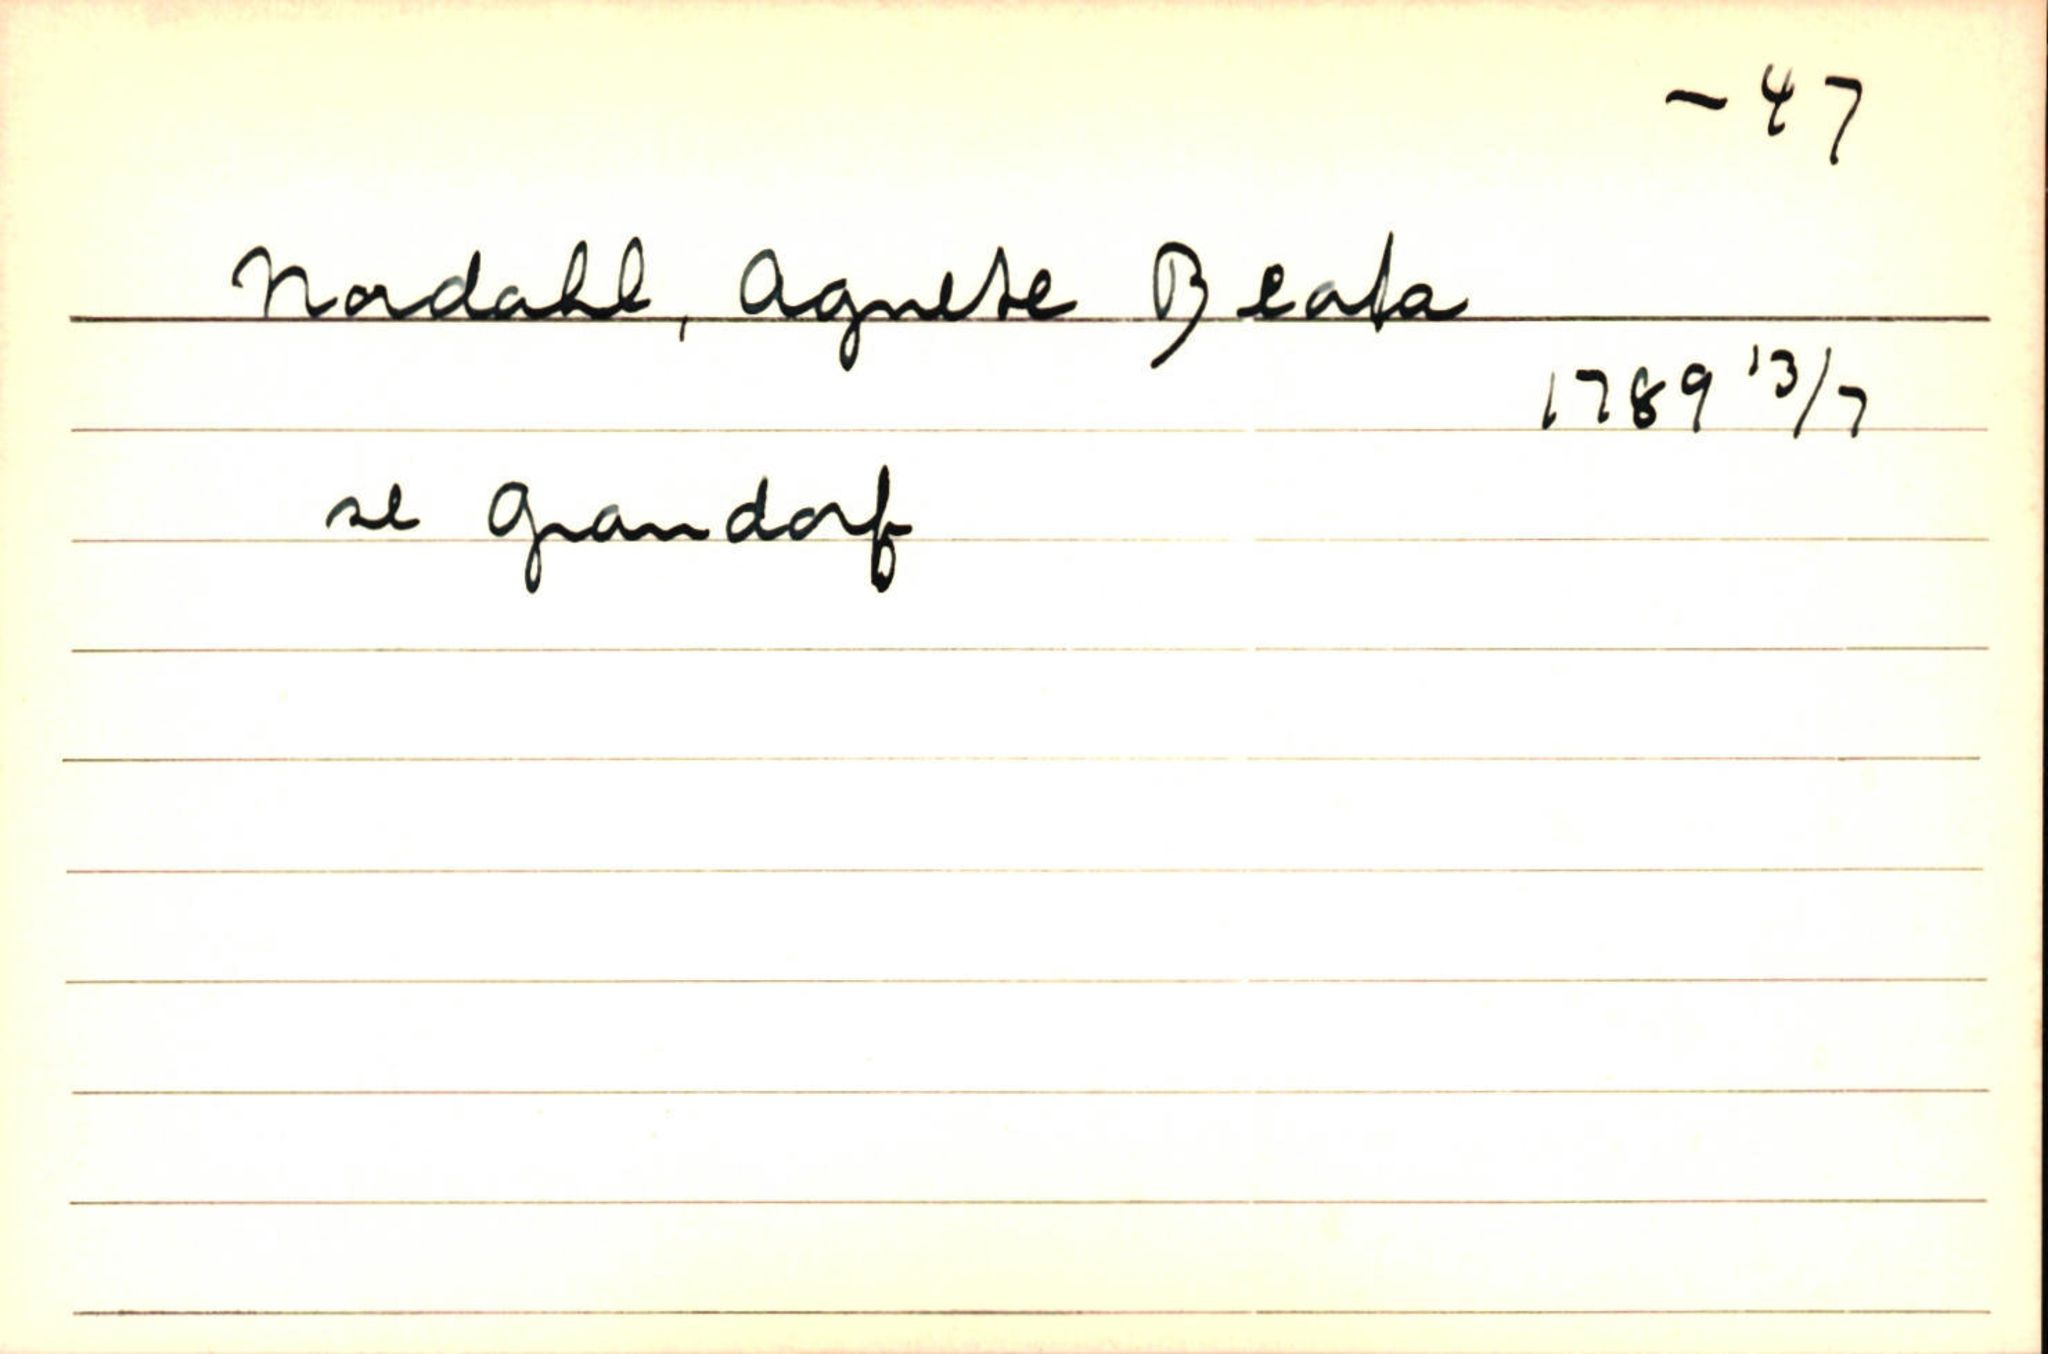 -47
Nordahl, Agnete Beata
1789 13/7
se Grandorf